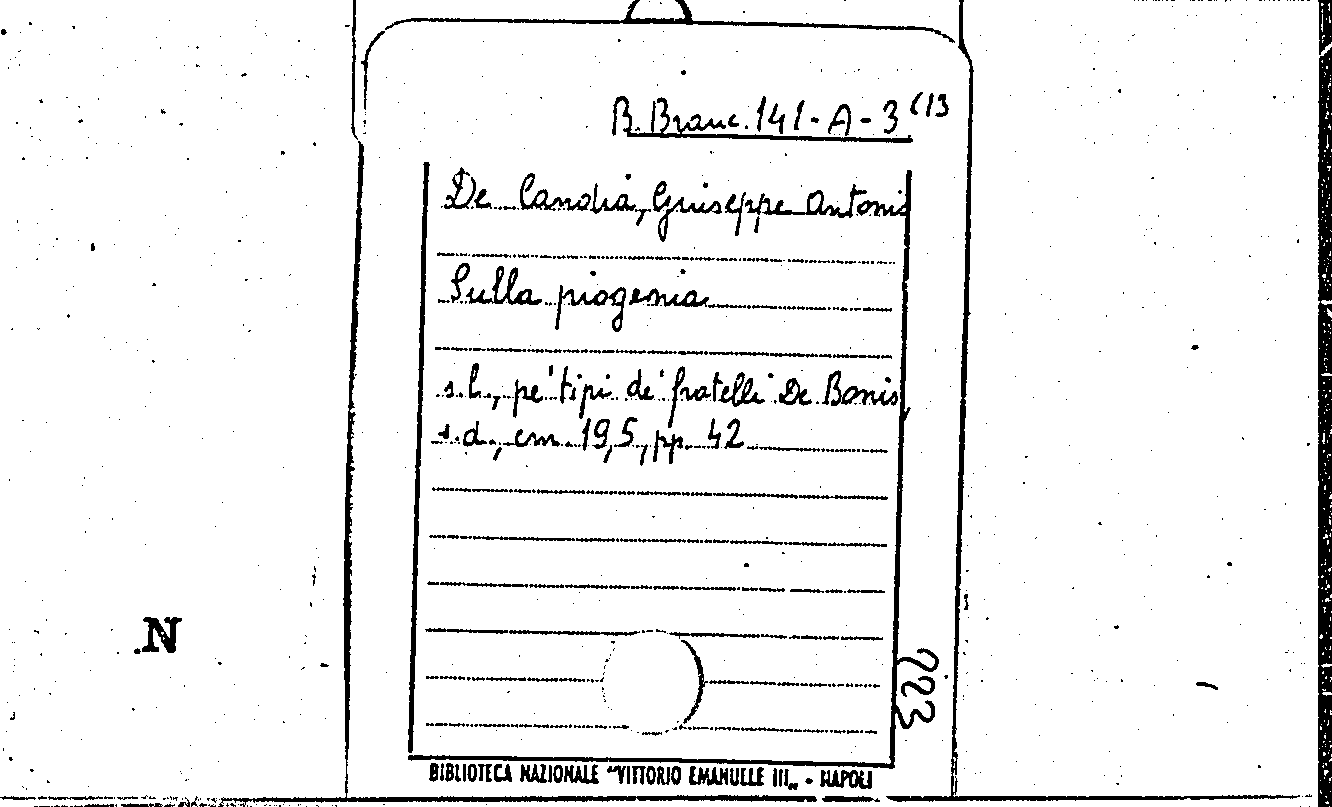 B. Branc. 141-A-3 (13
De Candia, Giuseppe Antonio
Sulla piogenia
s.l., pe' tipi de' fratelli De Bonis,
s.d., cm. 19,5, pp. 42
N
223
BIBLIOTECA NAZIONALE "VITTORIO EMANUELE III„ - NAPOLI